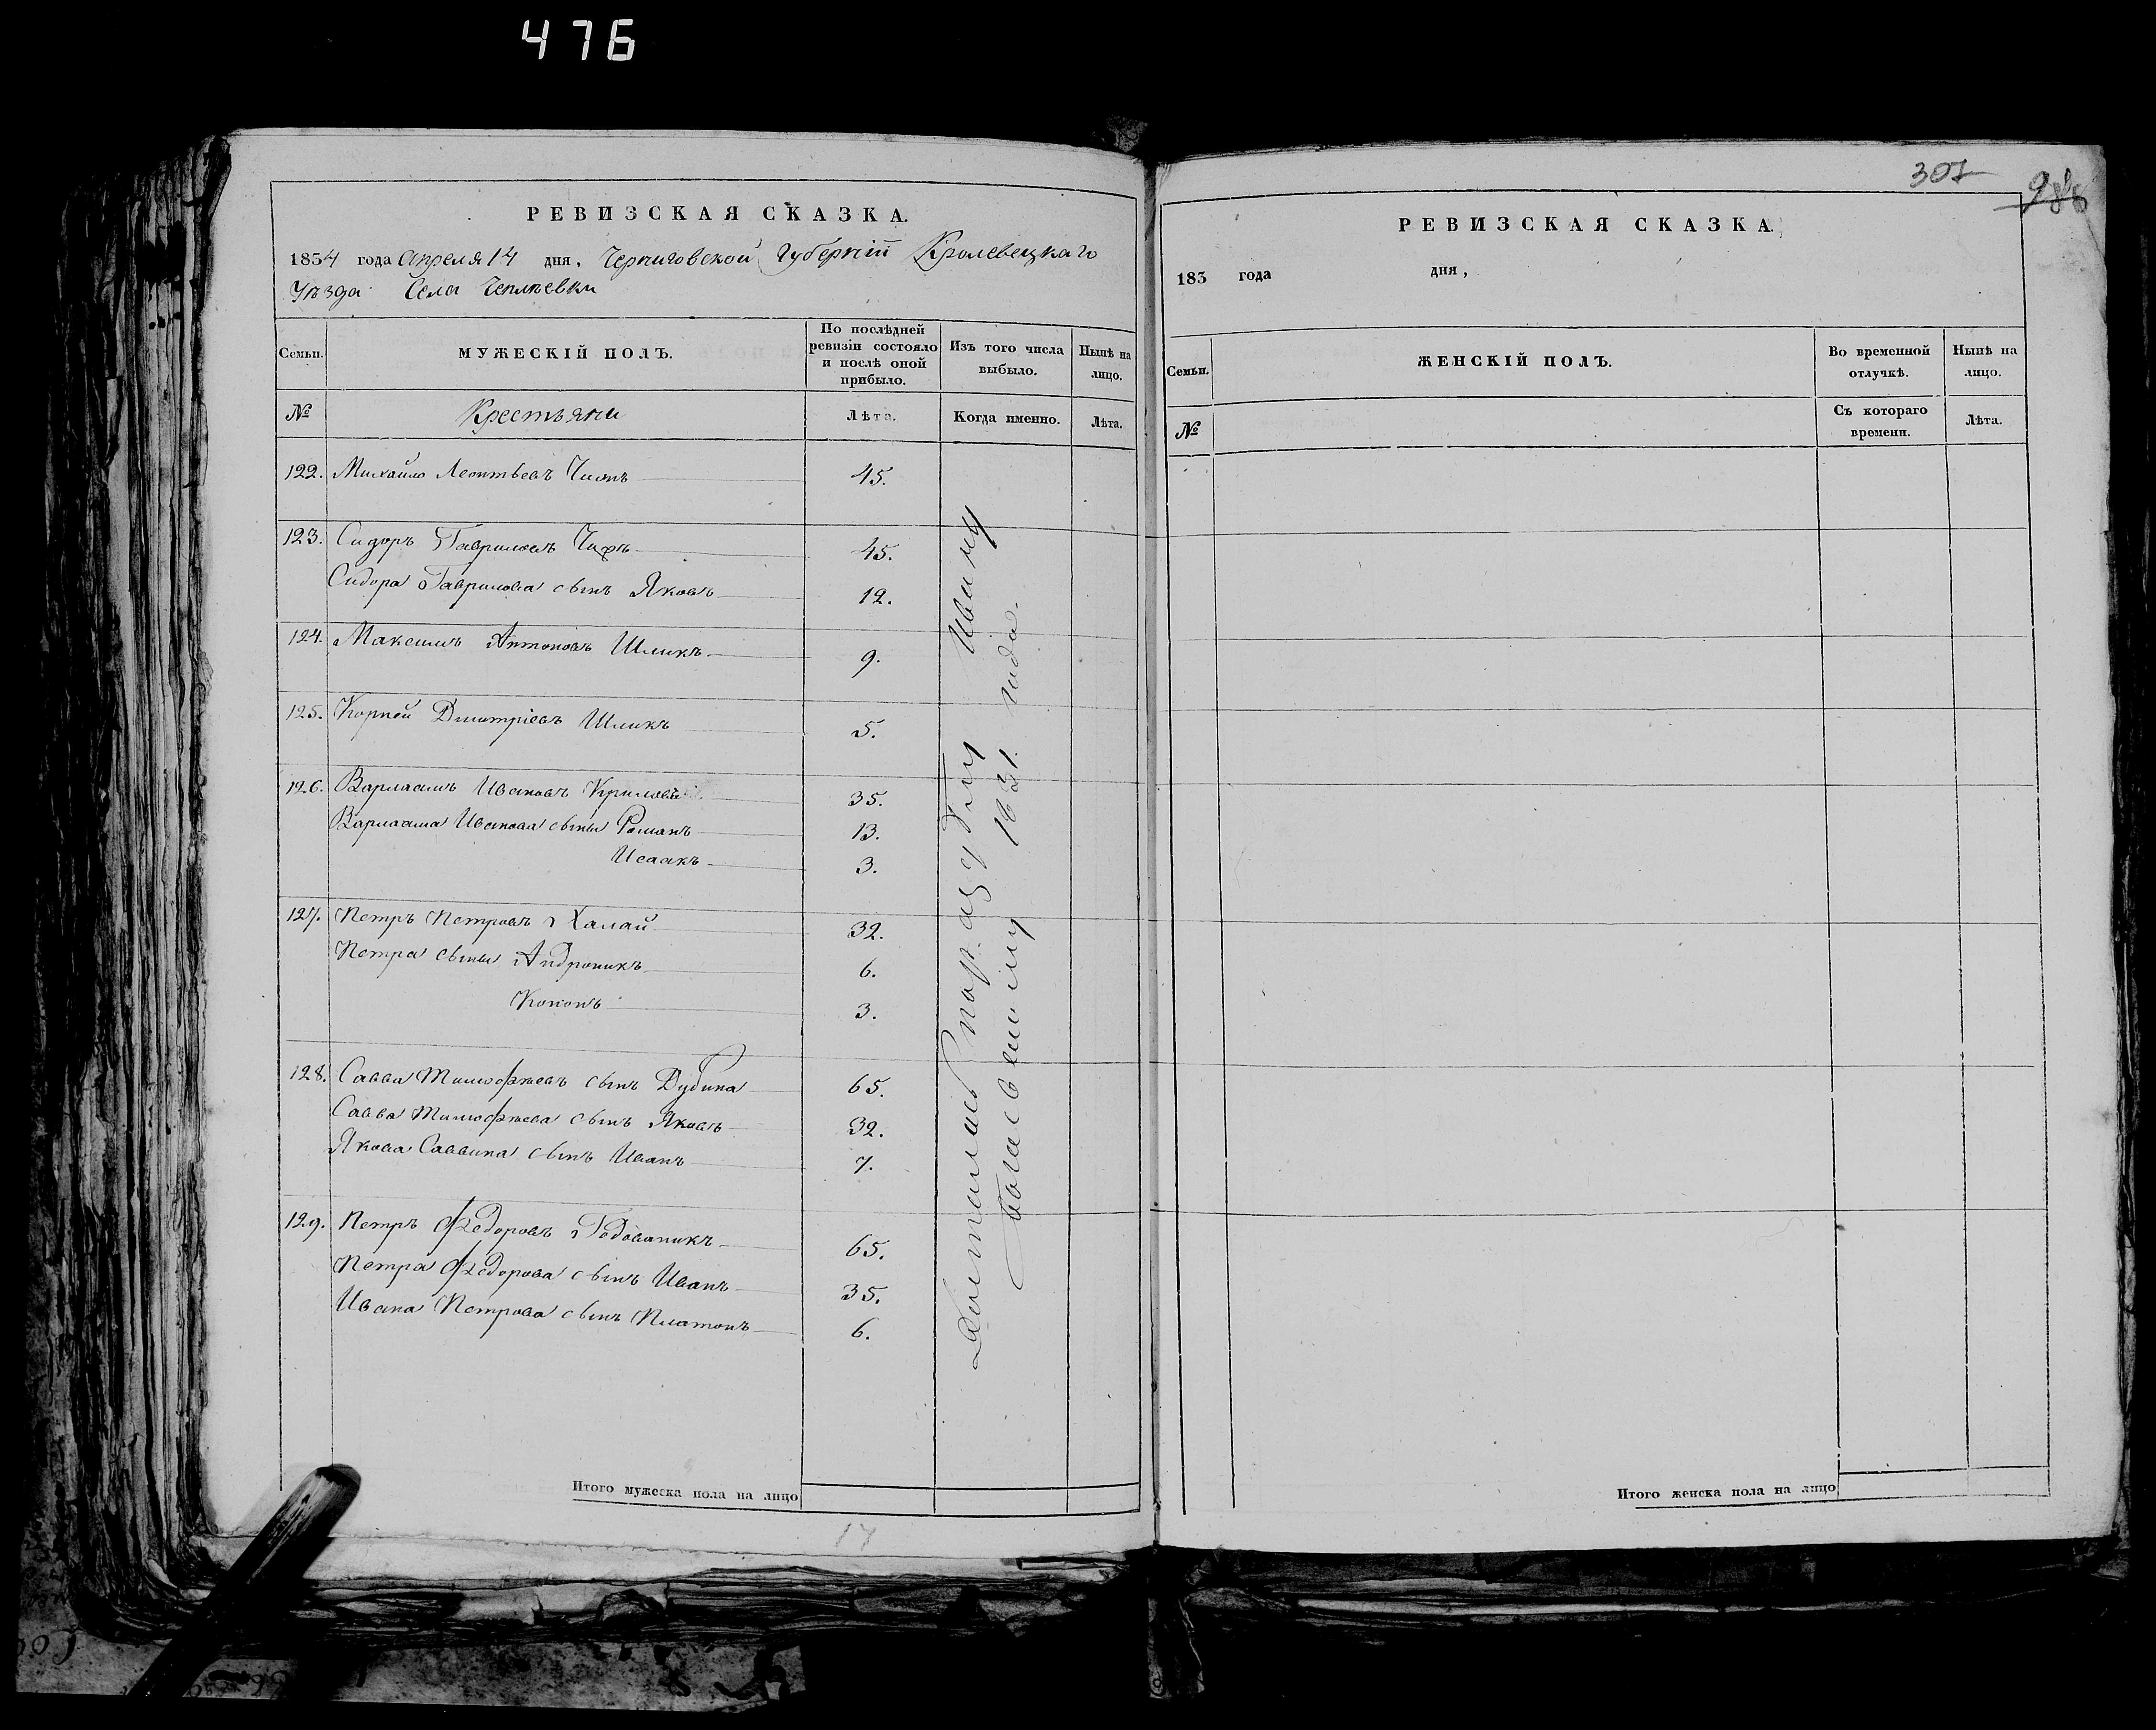 476
РЕВИЗСКАЯ СКАЗКА.
1834 года Апреля 14 дня, Черниговской Губерніи Кролевецкаго
Уѣзда Села Чеплѣевки
Семьи.
МУЖЕСКІЙ ПОЛЪ.
По послѣдней ревизіи состояло и послѣ оной прибыло.
Изъ того числа выбыло.
Нынѣ на лицо.
№
Крестьяни
Лѣта.
Когда именно.
Лѣта.
122. Михайло Леонтьевъ 45.
123. Сидоръ Гавриловъ 45.
Сидора Гаврилова сынъ Яковъ 12.
124. Максимъ Антоновъ Шликъ 9.
125. Корней Дмитріевъ Шликъ 5.
126. Варлаамъ Ивановъ 35.
Варлаама Иванова сыны Романъ 13.
Исаакъ 3.
127. Петръ Петровъ Халай 32.
Петра сыны Андроникъ 6.
Кононъ 3.
128. Савва Тимофѣевъ сынъ Дубина 65.
Савва Тимофѣева сынъ Яковъ 32.
Якова Саввина сынъ Иванъ 7.
129. Петръ Федоровъ Годованикъ 65.
Петра Федорова сынъ Иванъ 35.
Ивана Петрова сынъ Платонъ 6.
Достались Ивану
1831. года.
Итого мужеска пола на лицо
17
307
986
РЕВИЗСКАЯ СКАЗКА.
183 года дня,
Семьи.
ЖЕНСКІЙ ПОЛЪ.
Во временной отлучкѣ.
Нынѣ на лицо.
№
Съ котораго времени.
Лѣта.
Итого женска пола на лицо